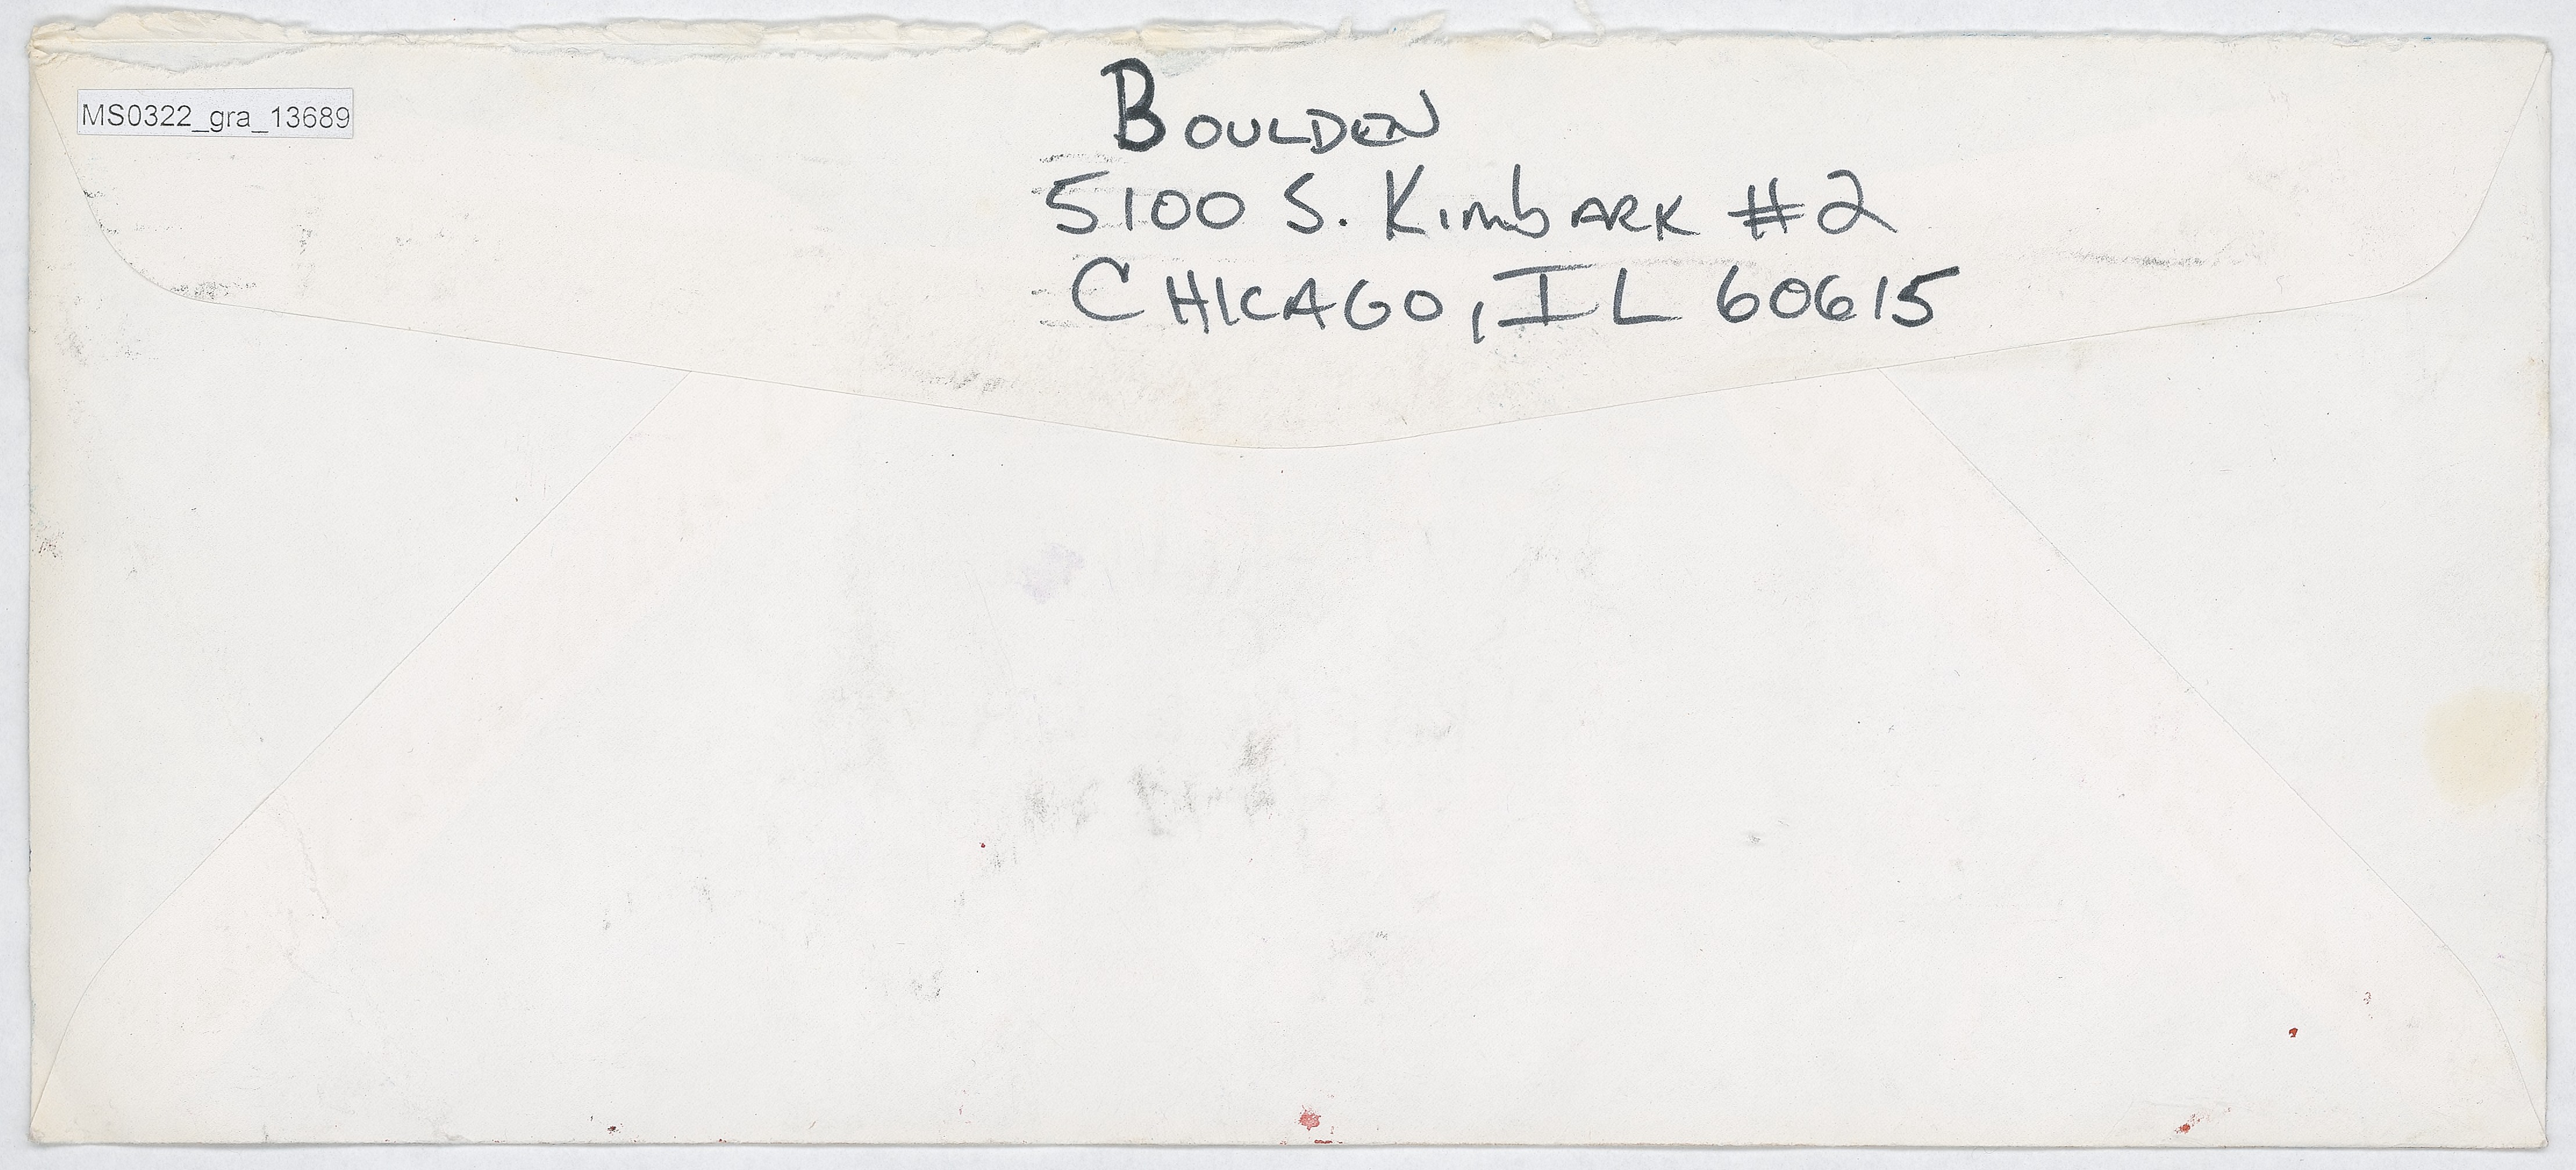 MS0322_gra_13689
Boulden
5100 S. Kimbark #2
Chicago, IL 60615